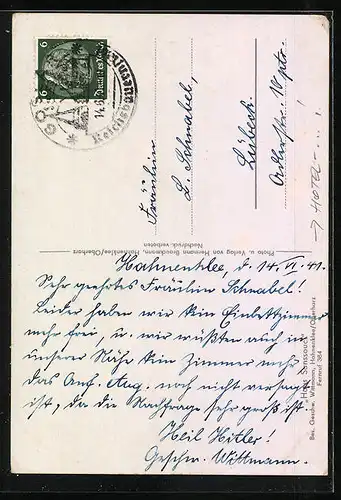 6
6
Deutsches Reich
GOSLAR
14.6
Reichsbau
Fräulein
L. Schnabel,
Lübeck.
Adlerstr.
→ HOTEL - ....
Photo u. Verlag von Hermann Brandmann, Hahnenklee/Oberharz
Nachdruck verboten
Hahnenklee, d. 14. VI. 41.
Sehr geehrtes Fräulein Schnabel!
Leider haben wir kein Einbettzimmer
mehr frei, u. wir wüßten auch in
unserer Nähe kein Zimmer mehr
das Anf. Aug. noch nicht versagt
ist, da die Nachfrage sehr groß ist.
Heil Hitler!
Geschw. Wittmann.
"Haus Sanssouci"
Bes. Geschw. Wittmann, Hahnenklee/Oberharz
Fernruf 364